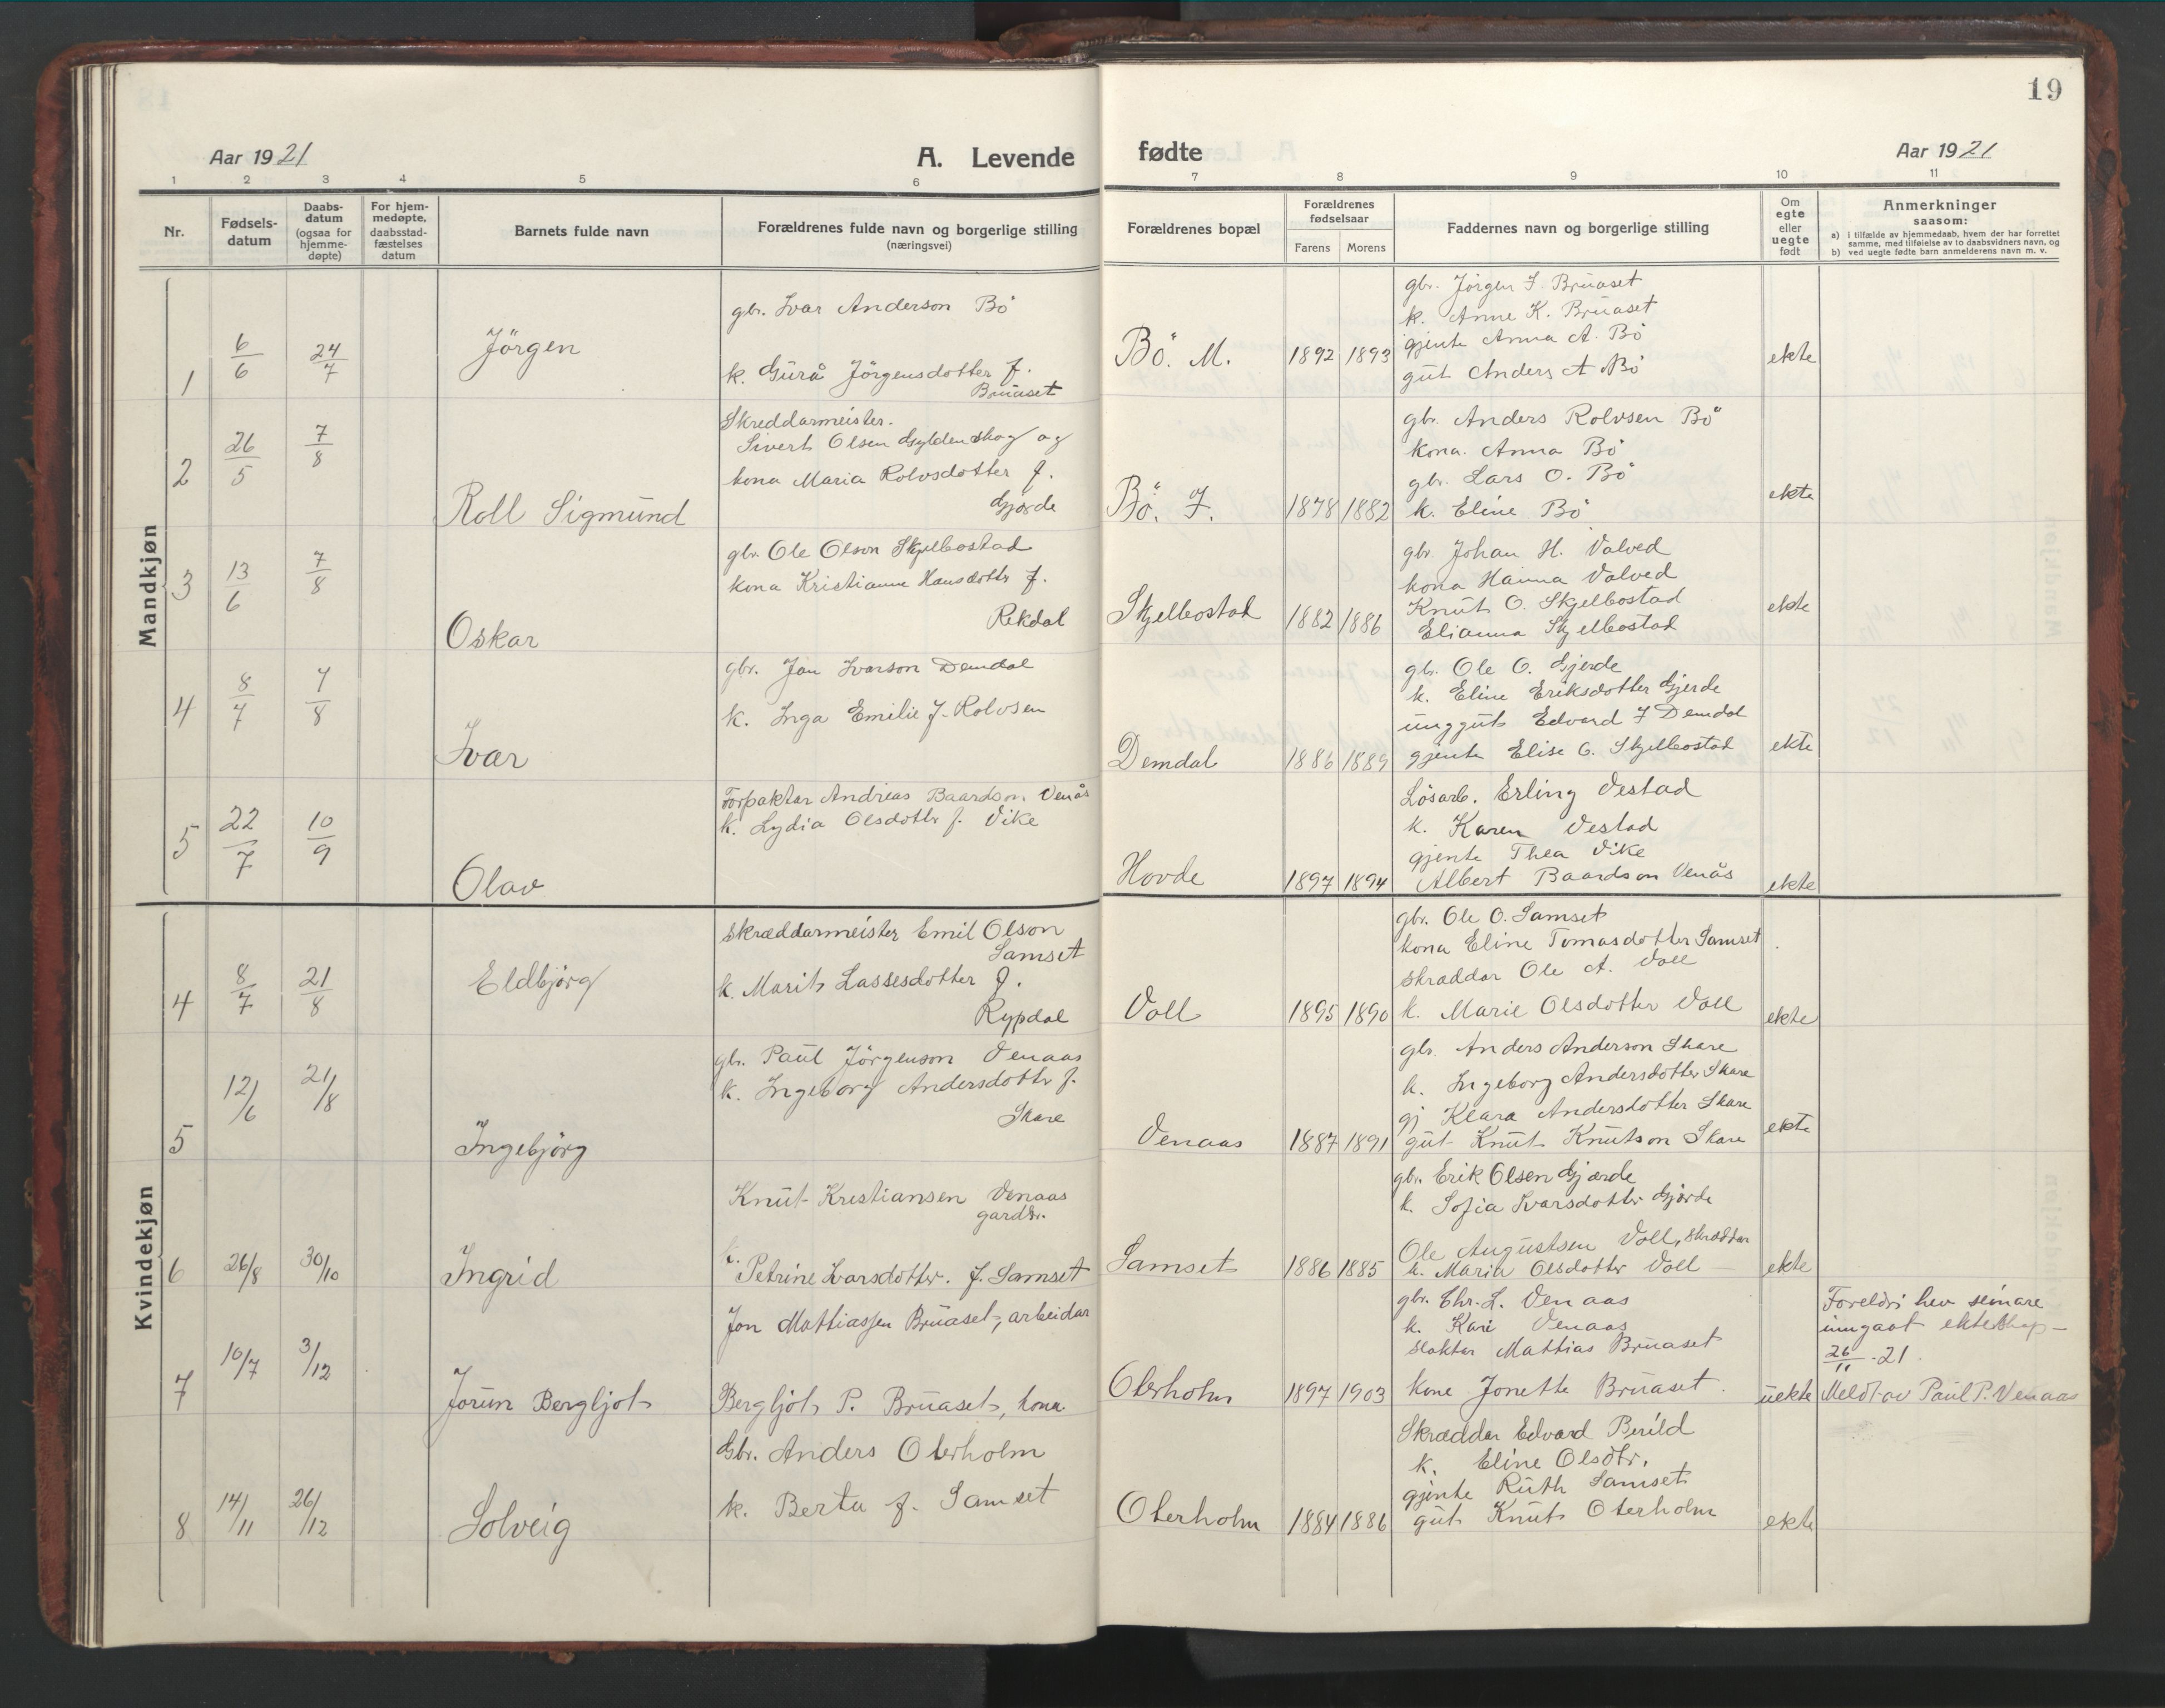 19
Aar 1921
A. Levende fødte
Aar 1921
1 2 3 4 5 6 7 8 9 10 11
Nr.
Fødsels-
datum
Daabs-
datum
(ogsaa for
hjemme-
døpte)
For hjem-
medøpte,
daabsstad-
fæstelses
datum
Barnets fulde navn
Forældrenes fulde navn og borgerlige stilling
(næringsvei)
Forældrenes bopæl
Forældrenes
fødselsaar
Farens Morens
Faddernes navn og borgerlige stilling
Om
egte
eller
uegte
født
Anmerkninger
saasom:
a) i tilfælde av hjemmedaab, hvem der har forrettet
samme, med tilføielse av to daabsvidners navn, og
b) ved uegte fødte barn anmelderens navn m. v.
Mandkjøn
1 6/6 24/7 Jörgen
gbr. Ivar Anderson Bö
k. Gurå Jörgensdotter f.
Bruaset
Bö. M. 1892 1893
gbr. Jörgen I. Bruaset
k. Anne K. Bruaset
gjente Anna A. Bö
gut Anders A Bö
ekte
2 26/5 7/8 Roll Sigmund
Skreddarmeister.
Sivert Olsen Gyldenskog og
kona Maria Rolvsdotter f.
Gjærde
Bö. I. 1878 1882
gbr. Anders Rolvsen Bö
kona. Anna Bö
gbr. Lars O. Bö
k. Eline Bö
ekte
3 13/6 7/8 Oskar
gbr. Ole Olson Skjelbostad
kona Kristianne Hansdottr f.
Rekdal
Skjelbostad 1882 1886
gbr. Johan H. Valved
kona Hanna Valved
Knut O. Skjelbostad
Elianna Skjelbostad
ekte
4 8/7 7/8 Ivar
gbr. Jon Ivarson Demdal
k. Inga Emilie f. Rolvsen
Demdal 1886 1889
gbr. Ole O. Gjerde
k. Eline Eriksdotter Gjerde
unggut Edvard I Demdal
gjente Elise O. Skjelbostad
ekte
5 22/7 10/9 Olav
Forpaktar Andreas Baardson Venås
k. Lydia Olsdottr f. Vike
Hovde 1897 1894
Lösarb. Erling Vestad
k. Karen Vestad
gjente Thea Vike
Albert Baardson Venås
ekte
Kvindekjøn
4 8/7 21/8 Eldbjörg
skræddarmeister Emil Olson
Samset
k. Marit Lassesdotter f.
Rypdal
Voll 1895 1890
gbr. Ole O. Samset
kona Eline Tomasdotter Samset
skraddar Ole A. Voll
k. Marie Olsdotter Voll
ekte
5 12/6 21/8 Ingebjörg
gbr. Paul Jörgenson Venaas
k. Ingeborg Andersdottr f.
Skare
Venaas 1887 1891
gbr. Anders Anderson Skare
k. Ingeborg Andersdotter Skare
gj Klara Andersdotter Skare
gut Knut Knutson Skare
ekte
6 26/8 30/10 Ingrid
Knut Kristiansen Venaas
gardbr.
k. Petrine Ivarsdotter. f. Samset
Samset 1886 1885
gbr. Erik Olsen Gjærde
k. Sofia Ivarsdottr Gjærde
Ole Augustsen Voll, skræddar
k. Maria Olsdottr Voll
ekte
7 10/7 3/12 Jorun Bergljot
Jon Mattiassen Bruaset, arbeidar
Bergljot P. Bruaset, kona.
Oterholm 1897 1903
gbr. Chr. L. Venaas
k. Kari Venaas
slaktar Mattias Bruaset
kone Jonette Bruaset.
uekte
Foreldri hev seinare
inngaat ekteskap
26/11 - 21.
Meldt av Paul P. Venaas
8 14/11 26/12 Solveig
Gbr. Anders Oterholm
k. Berta f. Samset
Oterholm 1884 1886
Skræddar Edvard Berild
k. Eline Olsdtr.
gjente Ruth Samset
gut Knut Oterholm
ekte